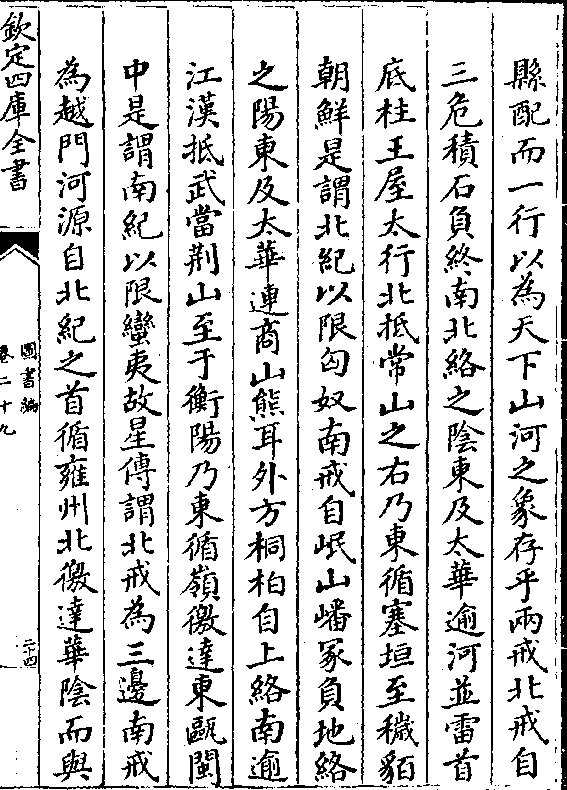 縣配而一行以為天下山河之象存乎兩戒北戒自
三危積石負終南北絡之陰東及太華逾河並雷首
底柱王屋太行北抵常山之右乃東循塞垣至穢貊
朝鮮是謂北紀以限匈奴南戒自岷山嶓冢負地絡
之陽東及太華連商山熊耳外方桐柏自上絡南逾
江漢抵武當荆山至于衡陽乃東循嶺徼達東甌閩
中是謂南紀以限蠻夷故星傳謂北戒為三邊南戒
為越門河源自北紀之首循雍州北徼達華陰而與
欽定四庫全書
圖書編
卷二十九
二十四